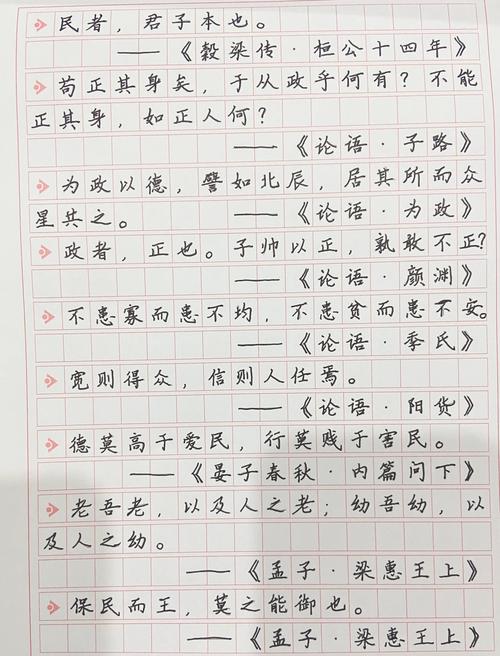 民者，君子本也。
——《穀梁传·桓公十四年》
苟正其身矣，于从政乎何有？不能
正其身，如正人何？
——《论语·子路》
为政以德，譬如北辰，居其所而众
星共之。——《论语·为政》
政者，正也。子帅以正，孰敢不正？
——《论语·颜渊》
不患寡而患不均，不患贫而患不安。
——《论语·季氏》
宽则得众，信则人任焉。
——《论语·阳货》
德莫高于爱民，行莫贱于害民。
——《晏子春秋·内篇问下》
老吾老，以及人之老；幼吾幼，以
及人之幼。
——《孟子·梁惠王上》
保民而王，莫之能御也。
——《孟子·梁惠王上》